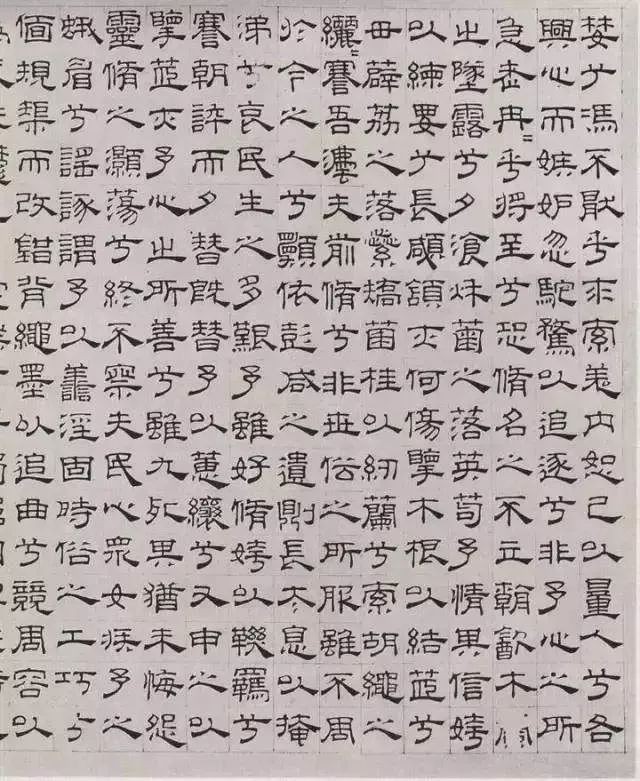 婪兮馮不猒乎求索羌内恕己以量人兮各
興心而嫉妒忽駝騖以追逐兮非予心之所
急老冉〻乎將至兮恐脩名之不立朝飲木
之墜露兮夕湌秌菊之落英苟予情其信姱
以練要兮長顑頷亦何傷擥木根以結茝兮
毌薜荔之落蘂矯菌桂以紉蘭兮索胡繩之
纚〻謇吾灋夫前脩兮非世俗之所服雖不周
於今之人兮顠依彭咸之遺則長太息以掩
涕兮哀民生之多艱予雖好脩姱以鞿羈兮
謇朝誶而夕替既替予以蕙纕兮又申之以
擥茝亦予心之所善兮雖九死其猶未悔怨
靈脩之灝蕩兮終不察夫民心眾女疾予之
蛾眉兮謠諑謂予以善淫固時俗之工巧兮
偭規榘而改錯背繩墨以追曲兮競周容以